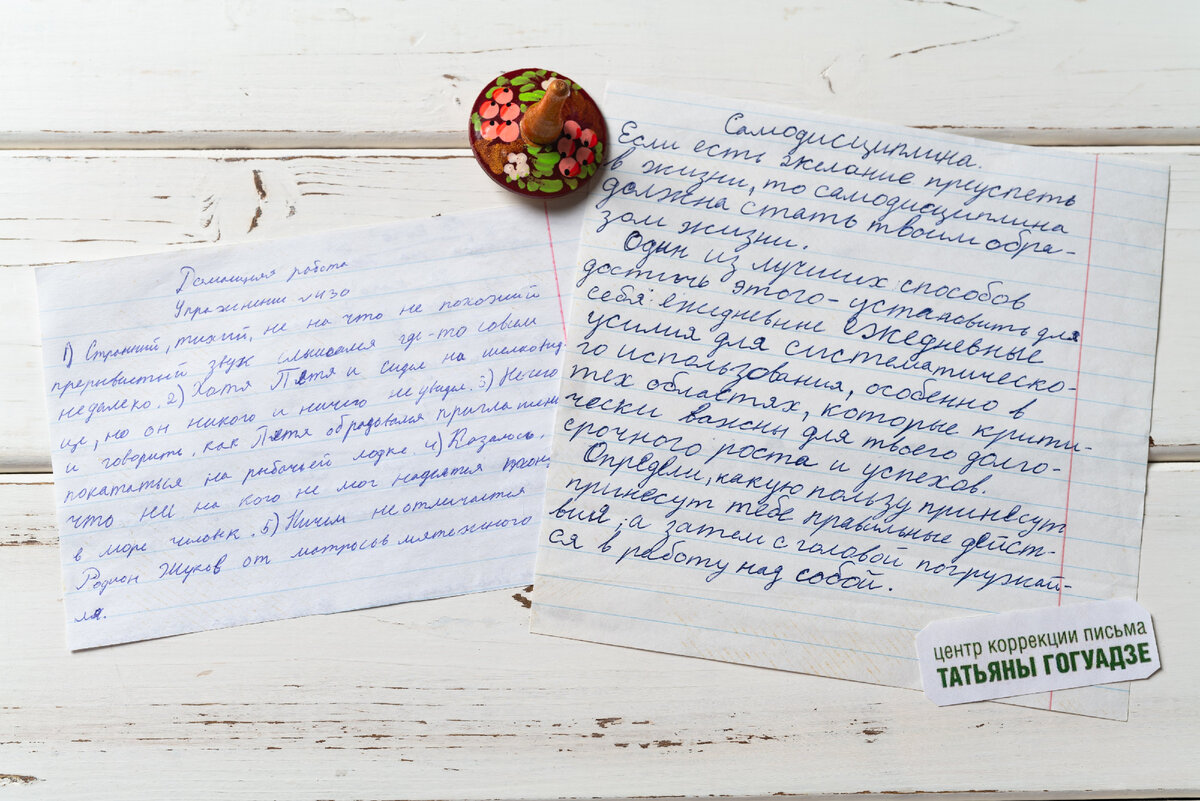 Домашняя работа
Упражнение №430
1) Странный, тихий, не на что не похожий
прерывистый звук слышался где-то совсем
недалеко. 2) Хотя Петя и сидел на шелковид
це, но он никого и ничего не увидел. 3) Нечего
и говорить, как Петя обрадовался приглашени
покататься на рыбачьей лодке. 4) Казалось,
что ни на кого не мог надеятся
в море человек. 5) Ничем не отличается
Родион Жуков от матросов мятежного
ля.
Самодисциплина.
Если есть желание преуспеть
в жизни, то самодисциплина
должна стать твоим обра-
зом жизни.
Один из лучших способов
достичь этого - установить для
себя ежедневные ежедневные
усилия для систематическо-
го использования, особенно в
тех областях, которые крити-
чески важны для твоего долго-
срочного роста и успехов.
Определи, какую пользу принесут
принесут тебе правильные дейст-
вия, а затем с головой погружай-
ся в работу над собой.
центр коррекции письма
ТАТЬЯНЫ ГОГУАДЗЕ